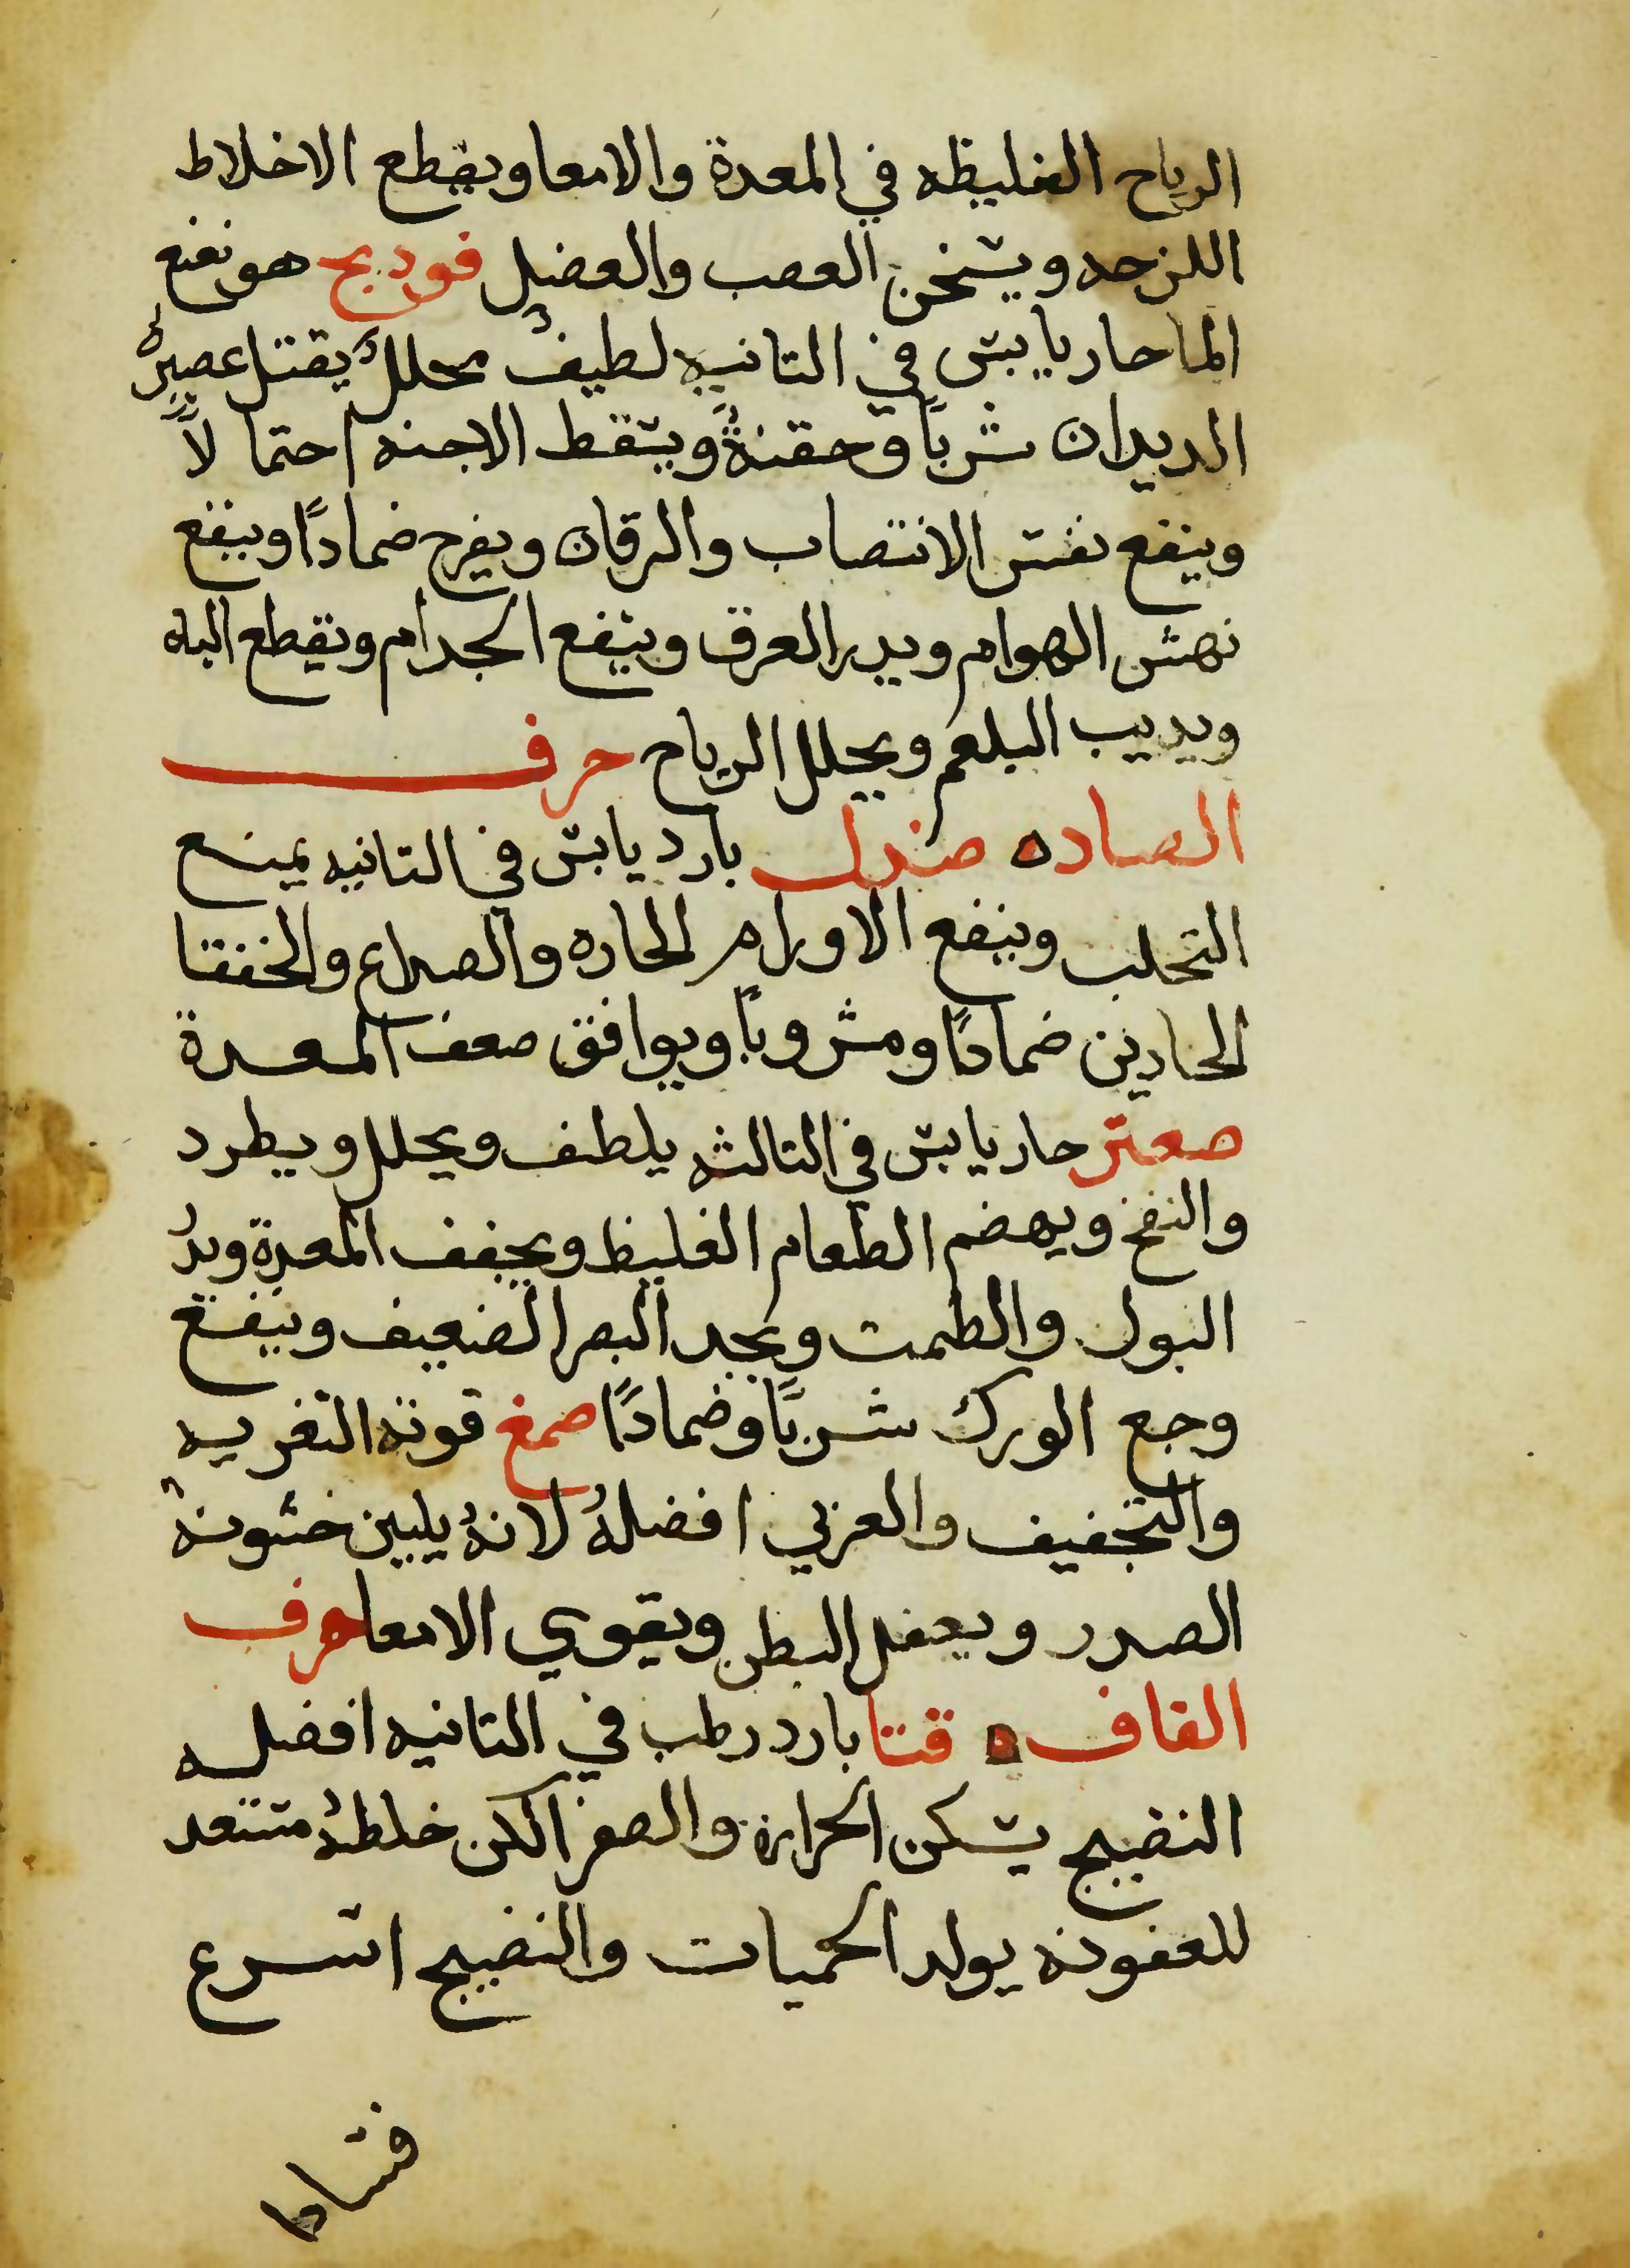 الرياح الغليظه في المعدة والامعا ويقطع الاخلاط
اللزجه ويسخن العصب والعضل فودنج هو نعنع
الما حار يابس في التانيه لطيفٌ محللٌ يقتل عصيرهُ
الديدان شرباً وحقنةً ويسقط الاجنه احتمالاً
وينفع نفس الانتصاب واليرقان ويفرح ضماداً وينفع
نهش الهوام ويدر العرق وينفع الجدام ويقطع الباه
ويديب البلغم ويحلل الرياح حرف
الصاده صندل بارد يابس في التانيه يمنع
التحلب وينفع الاورام الحاره والصداع والخفقا
الحادين ضماداً ومشروباً ويوافق صعف المعدة
صعتر حار يابس في التالثه يلطف ويحلل ويطرد
والنفخ ويهضم الطعام الغليظ ويجفف المعدة ويدُ
البول والطمت ويحد البصر الضعيف وينفع
وجع الورك شرباً وضماداً صمغ قوته التغريه
والتجفيف والعربي افضلهُ لانهُ يلين خشونة
الصدر ويعقل البطن ويقوي الامعا حرف
القاف قتا بارد رطب في التانيه افضله
النضيج يسكن الحرارة والصفرا لكن خلطهُ مستعد
للعفونه يولد الحميات والنضيج اسرع
فسادا